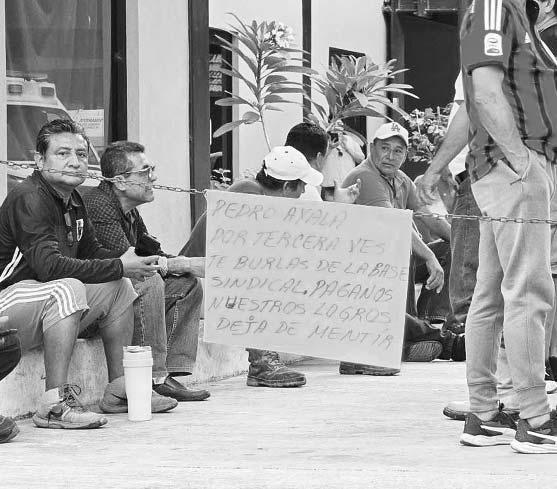 PEDRO AYALA
POR TERCERA VES
TE BURLAS DE LA BASE
SINDICAL, PAGANOS
NUESTROS LOGROS
DEJA DE MENTIR